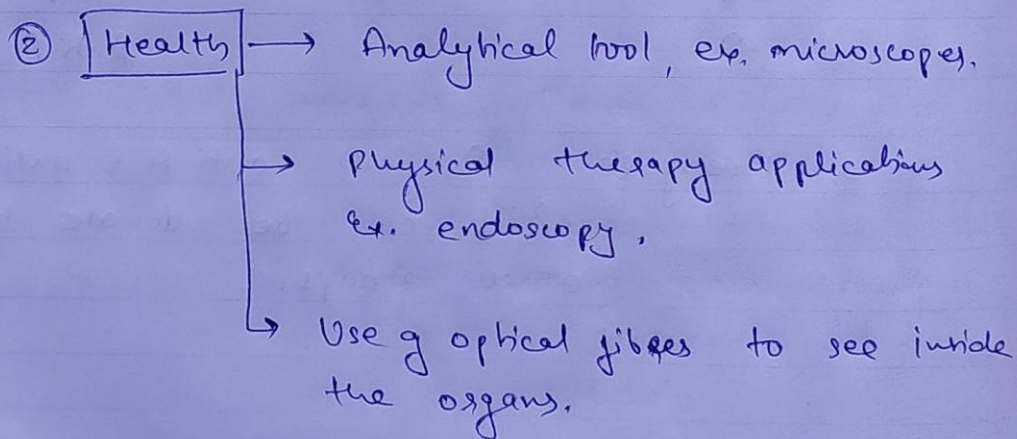 ② Health → Analytical tool, ex. microscopes.
→ Physical therapy applications
Ex. endoscopy.
→ Use of optical fibres to see inside
the organs.